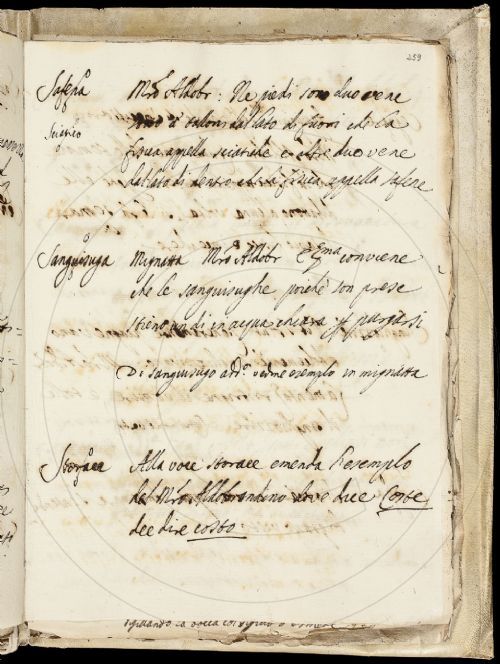 259
Safena Mro Aldobr: Ne piedi sono due vene
Sciatico sono i talloni dal lato di fuori che la
fisica appella sciatiche e altre due vene
dal lato di dentro che la fisica appella safene
Sanguisuga Mignatta Mro Aldobr conviene
che le sanguisughe poichè son prese
stieno un dì in acqua chiara p purgarsi
Di sanguisugo esemplo in mignatta
Storace Alla voce storace emenda l'esemplo
del Mro Aldobrandino dove dice Coste
dee dire costo